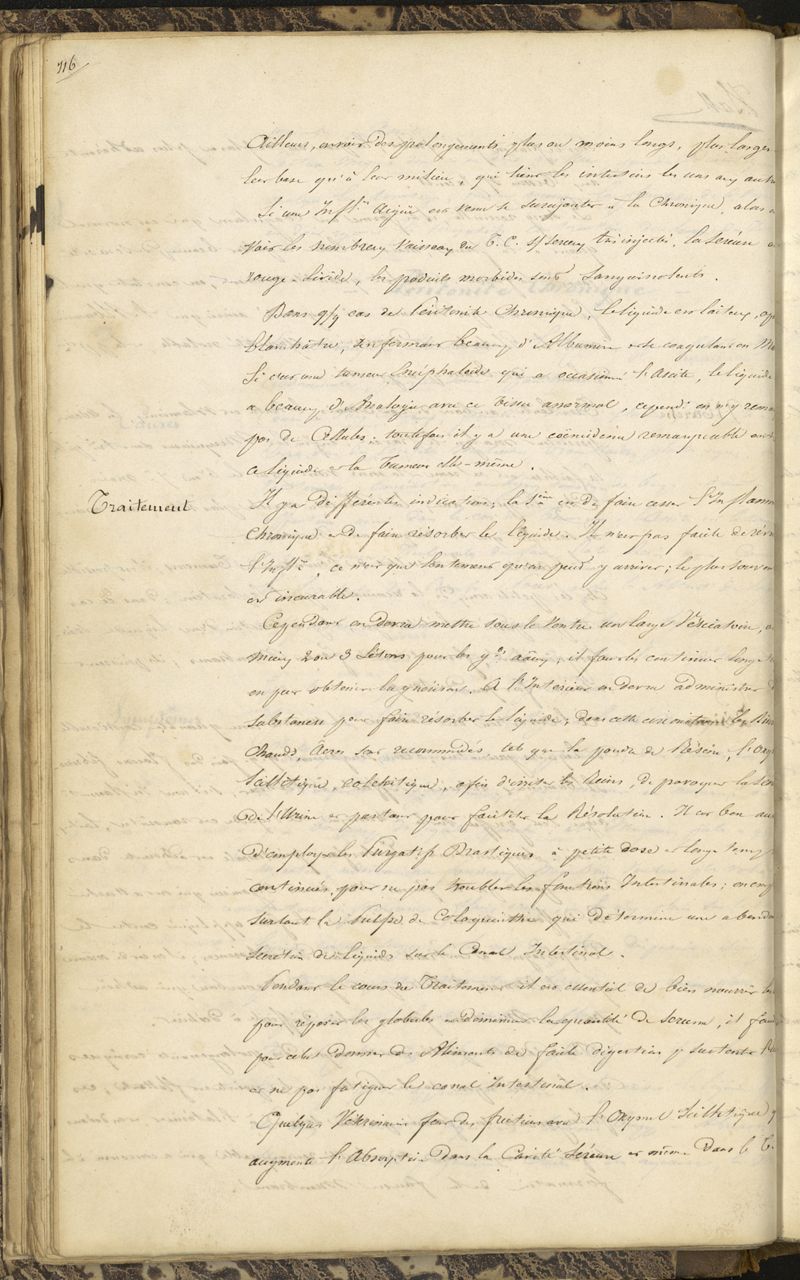 716
Ailleurs, on voit des prolongements plus ou moins longs, plus larges
leur base qu'à leur milieu, qui lient les intestins les uns aux autr
Si une Inflon Aigüe est venue se surajouter à la Chronique, alors
voit les nombreux vaisseaux du T. C. s/ sereux très injectés, la séreuse
rouge livide, les produits morbides sont Sanguinolents.
Dans qlq cas de Péritonite Chronique, le liquide est laiteux,
blanchâtre, renfermant beaucp d'Albumine et se coagulant en M
Si c'est une tumeur Encéphaloïde qui a occasionné l'Ascite, le liquide
a beaucp d'Analogie avec ce tissu anormal, cepend. on n'y rema
pas de Cellules; toutefois il y a une coïncidence remarquable ent
ce liquide et la Tumeur elle-même.
Traitement
Il y a différentes indications; la 1ère est de faire cesser l'Inflamm
Chronique et de faire résorber le liquide. Il n'est pas facile de
l'Inflon, ce n'est que lentement qu'on peut y arriver; le plus souven
est incurable.
Cependant on devra mettre sous le Ventre un large Vésicatoire,
mieux 2 ou 3 Sétons pour les gds aâux; il faut les continuer longt
on peut obtenir la guérison. A l'Intérieur on devra administrer
substances pour faire résorber le liquide; dans cette circonstance les
Chauds, Acres sont recommandés, tels que la poudre de Résine, l'Oxy
Scillitique, colchitique, afin d'exciter les Reins, de provoquer la Sec
de l'Urine et partant pour faciliter la Résolution. Il est bon au
d'employer les Purgatifs Drastiques à petite dose et longtemps
continués, pour ne pas troubler les fonctions Intestinales; on emp
surtout la Pulpe de Coloquinthe qui détermine une abonda
Secrétion de liquides sur le Canal Intestinal.
Pendant le cours du Traitement il est essentiel de bien nourrir
pour réparer les globules et diminuer la quantité de serum, il fau
pour cela donner des Aliments de facile digestion pr sustenter
et ne pas fatiguer le canal Intestinal.
Quelques Vétérinaires font des frictions avec l'Oxymel Scillitique
augmente l'Absorption dans la Cavité Séreuse et même Dans le T.